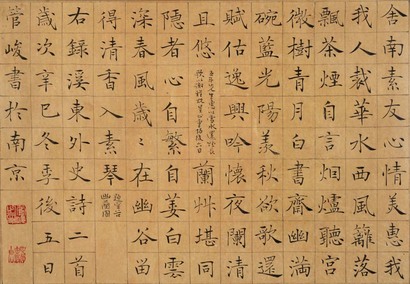 舍南友心情美惠我
我人裁華水西籬落
飄茶煙自言烟爐聽宮
微樹青月白書齋幽滿
碗藍光陽羨秋欲歌還
賦估逸興吟懷夜闌清
且悠
蘭艸堪同
隱者心自繁自姜白雲
深春風歲〻在幽谷留
得清香入素琴
題雪谷
幽蘭圖
右錄溪東外史詩二首
歲次辛巳冬季後五日
管峻書於南京